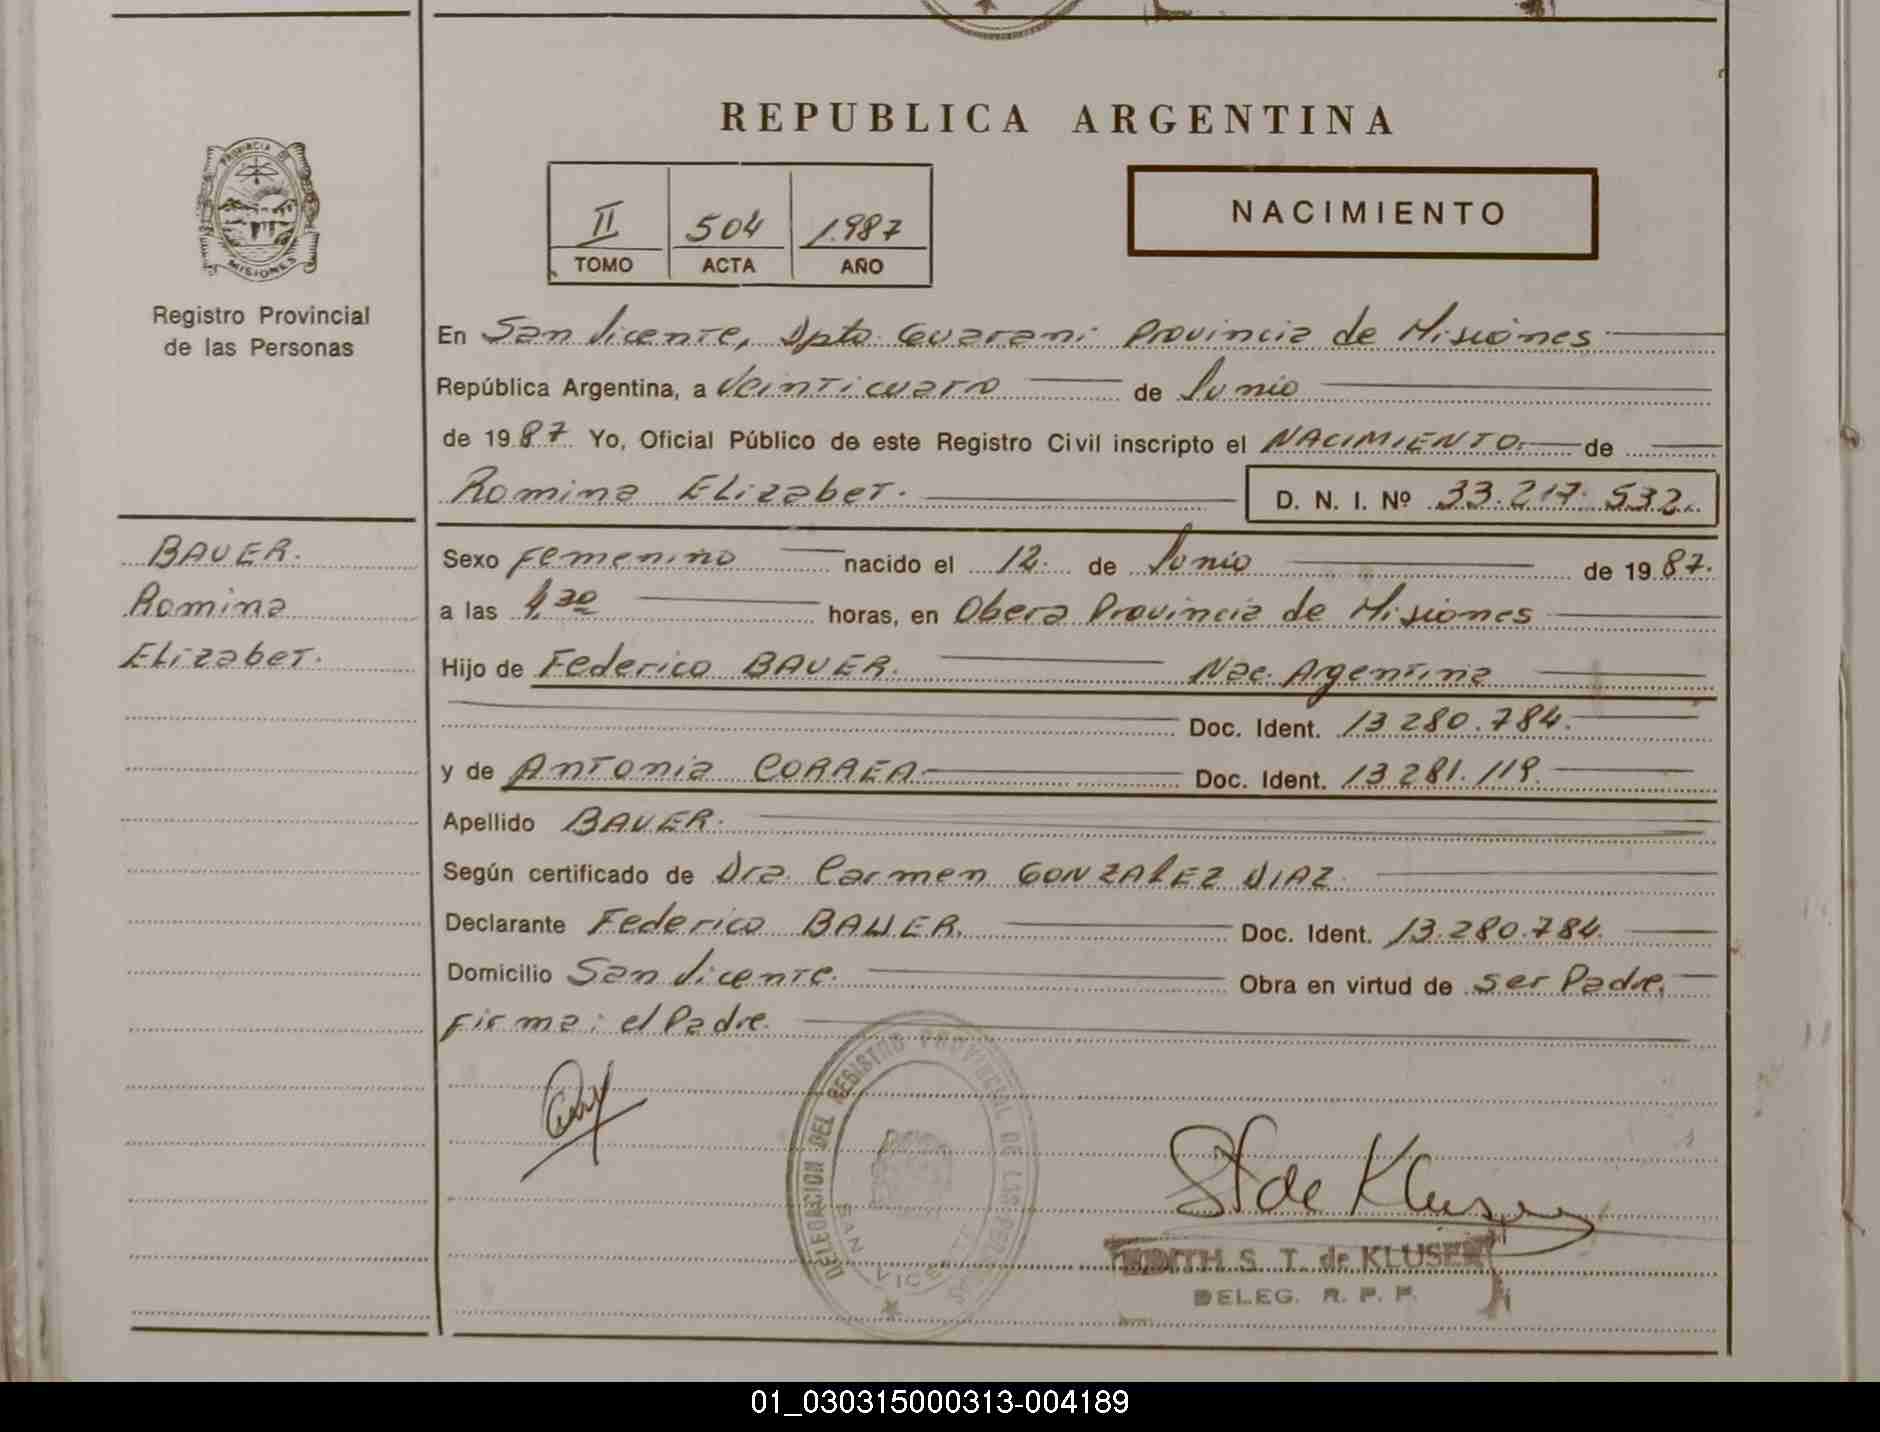 REPUBLICA ARGENTINA
PROVINCIA DE
MISIONES
Registro Provincial
de las Personas
II 504 1.987
TOMO ACTA AÑO
NACIMIENTO
En San Vicente, Dpto. Guarani Provincia de Misiones
República Argentina, a Veinticuatro de Junio
de 1987 Yo, Oficial Público de este Registro Civil inscripto el NACIMIENTO. de
Romina Elizabet. D. N. I. Nº 33.217.532.
BAUER.
Romina
Elizabet.
Sexo Femenino nacido el 12. de Junio de 1987.
a las 4,30 horas, en Obera Provincia de Misiones
Hijo de Federico BAUER. Nac. Argentina
Doc. Ident. 13.280.784.
y de Antonia CORREA Doc. Ident. 13.281.119.
Apellido BAUER.
Según certificado de Dra. Carmen GONZALEZ DIAZ.
Declarante Federico BAUER. Doc. Ident. 13.280.784.
Domicilio San Vicente. Obra en virtud de ser Padre.
Firma: el Padre.
DELEGACION DEL REGISTRO PROVINCIAL DE LAS PERSONAS
SAN VICENTE
ST de Kluser
EDITH S. T. de KLUSER
DELEG. R. P. P.
01_030315000313-004189